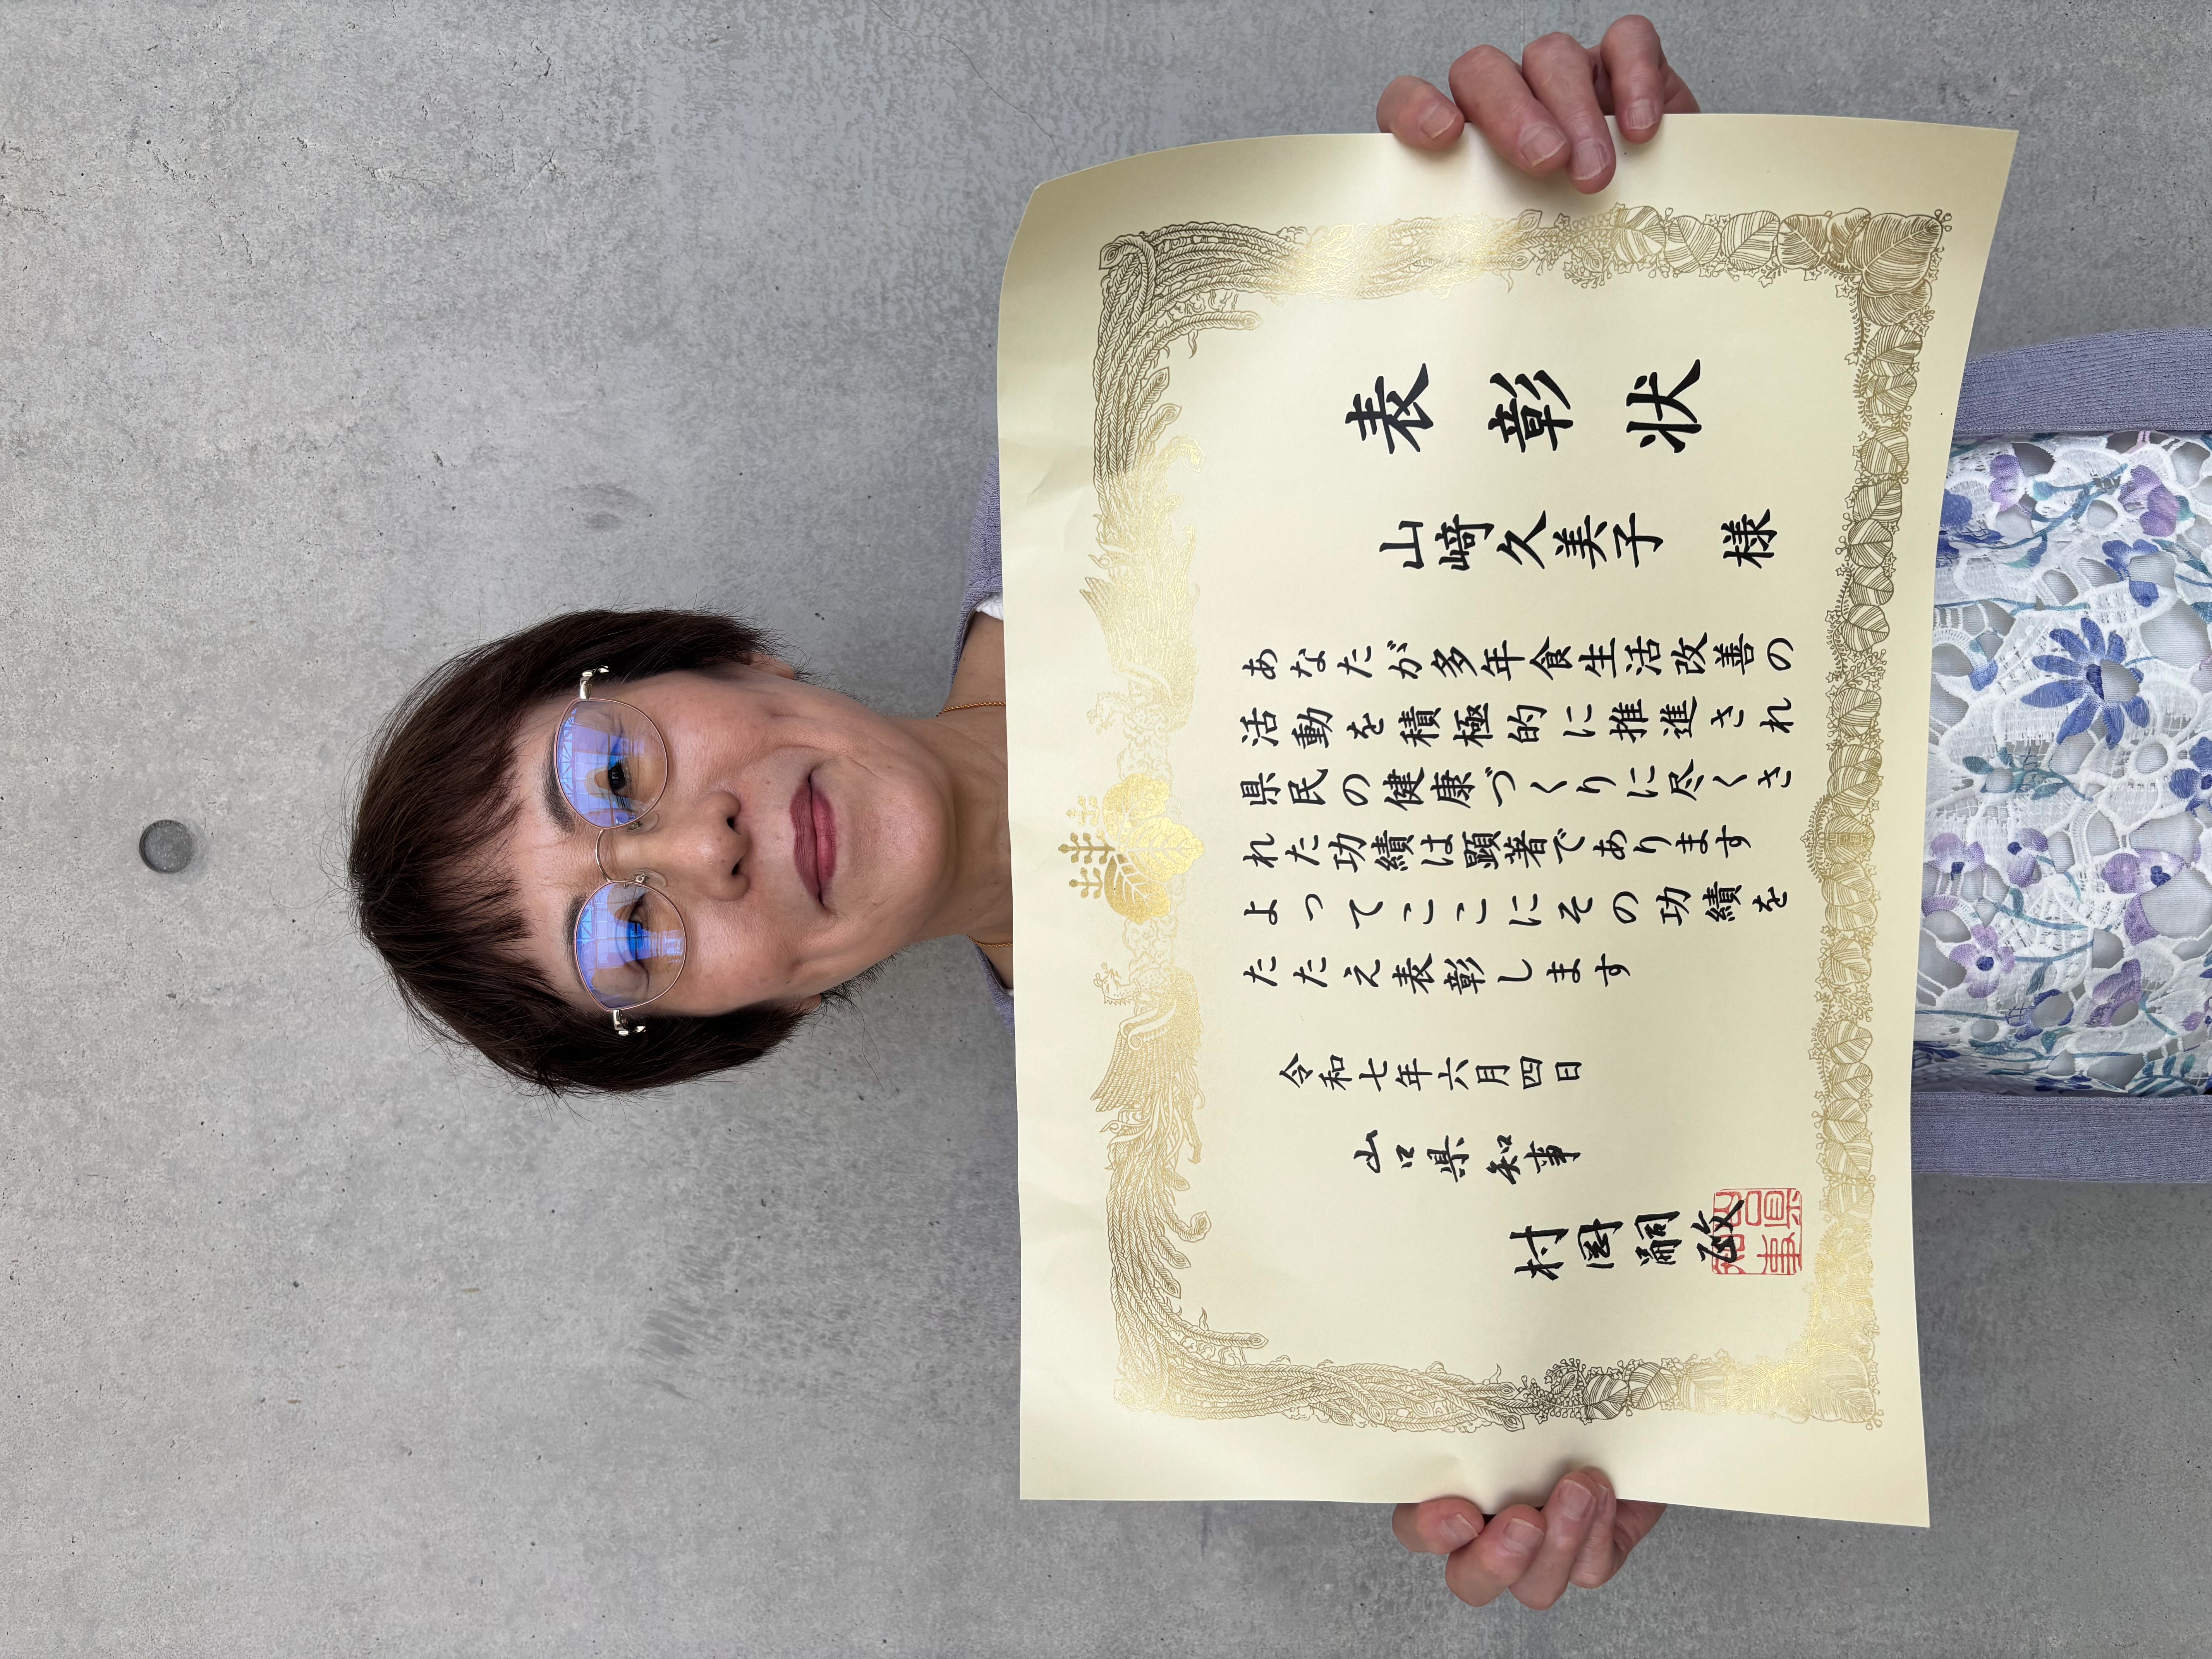 表彰状
山﨑久美子 様
あなたが多年食生活改善の
活動を積極的に推進され
県民の健康づくりに尽くさ
れた功績は顕著であります
よってここにその功績を
たたえ表彰します
令和七年六月四日
山口県知事
村岡嗣政